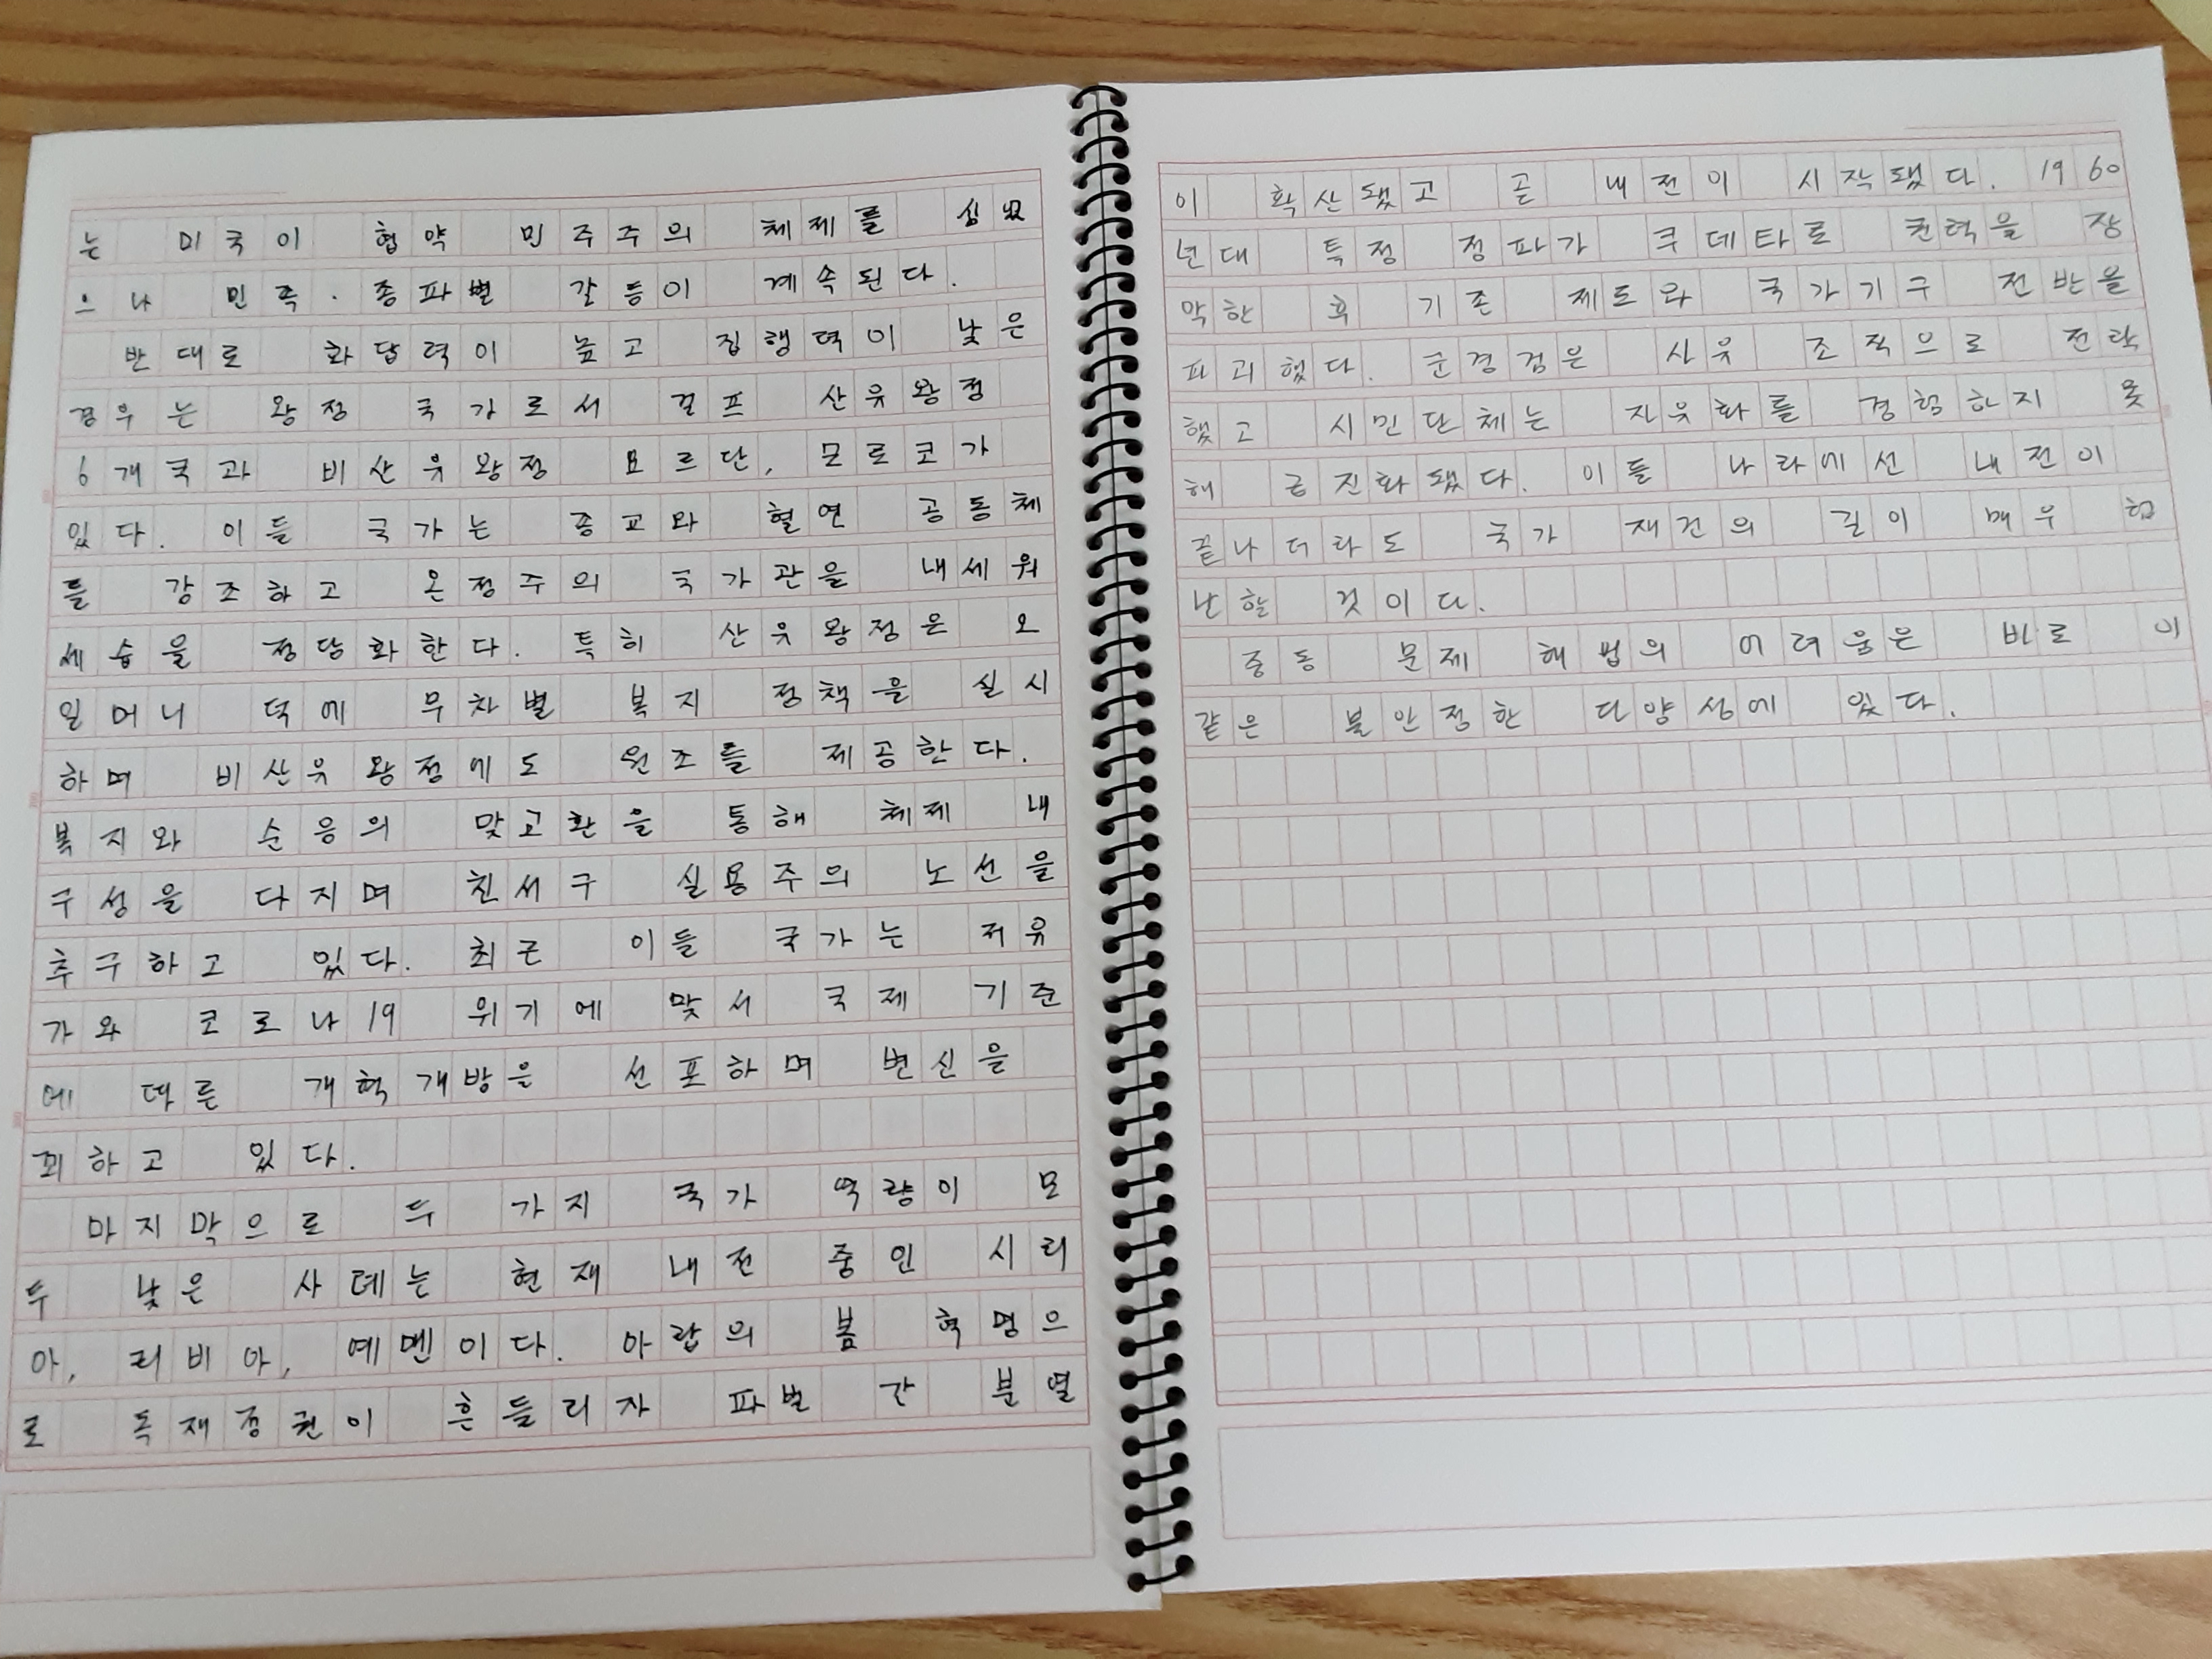 는 미국이 협약 민주주의 체제를 심었
으나 민족·종파별 갈등이 계속된다.
반대로 화답력이 높고 집행력이 낮은
경우는 왕정 국가로서 걸프 산유왕정
6개국과 비산유왕정 요르단, 모로코가
있다. 이들 국가는 종교와 혈연 공동체
를 강조하고 온정주의 국가관을 내세워
세습을 정당화한다. 특히 산유왕정은 오
일머니 덕에 무차별 복지 정책을 실시
하며 비산유왕정에도 원조를 제공한다.
복지와 순응의 맞고환을 통해 체제 내
구성을 다지며 친서구 실용주의 노선을
추구하고 있다. 최근 이들 국가는 저유
가와 코로나19 위기에 맞서 국제 기준
에 따른 개혁개방을 선포하며 변신을
꾀하고 있다.
마지막으로 두 가지 국가 역량이 모
두 낮은 사례는 현재 내전 중인 시리
아, 리비아, 예멘이다. 아랍의 봄 혁명으
로 독재정권이 흔들리자 파벌 간 분열
이 확산됐고 곧 내전이 시작됐다. 1960
년대 특정 정파가 쿠데타로 권력을 장
악한 후 기존 제도와 국가기구 전반을
파괴했다. 군경검은 사유 조직으로 전락
했고 시민단체는 자유화를 경험하지 못
해 급진화됐다. 이들 나라에선 내전이
끝나더라도 국가 재건의 길이 매우 험
난할 것이다.
중동 문제 해법의 어려움은 바로 이
같은 불안정한 다양성에 있다.